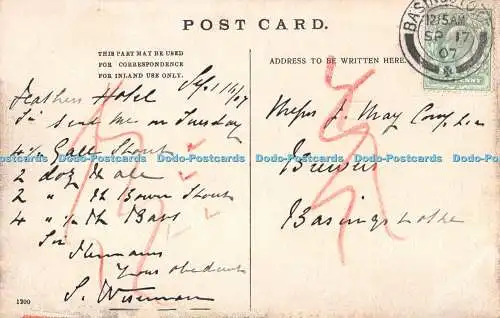 POST CARD.
THIS PART MAY BE USED
FOR CORRESPONDENCE
FOR INLAND USE ONLY.
ADDRESS TO BE WRITTEN HERE.
BASINGSTOKE
12.15AM
SP 17
07
Feathers Hotel
Sep 16/07
Sir
Send me on Tuesday
Gall Stout
2 doz
2 " Stout
4 " Bass
Sir
Yours obedient
S. Wiseman
Messrs J. May Comp
Brewers
Basingstoke
1200
Dodo-Postcards Dodo-Postcards Dodo-Postcards Dodo-Postcards Dodo-Postcards